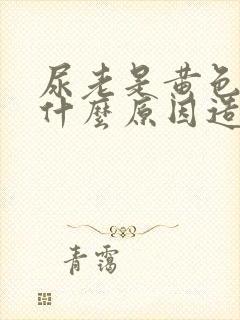 尿老是黄色
什麼原因造
青霭